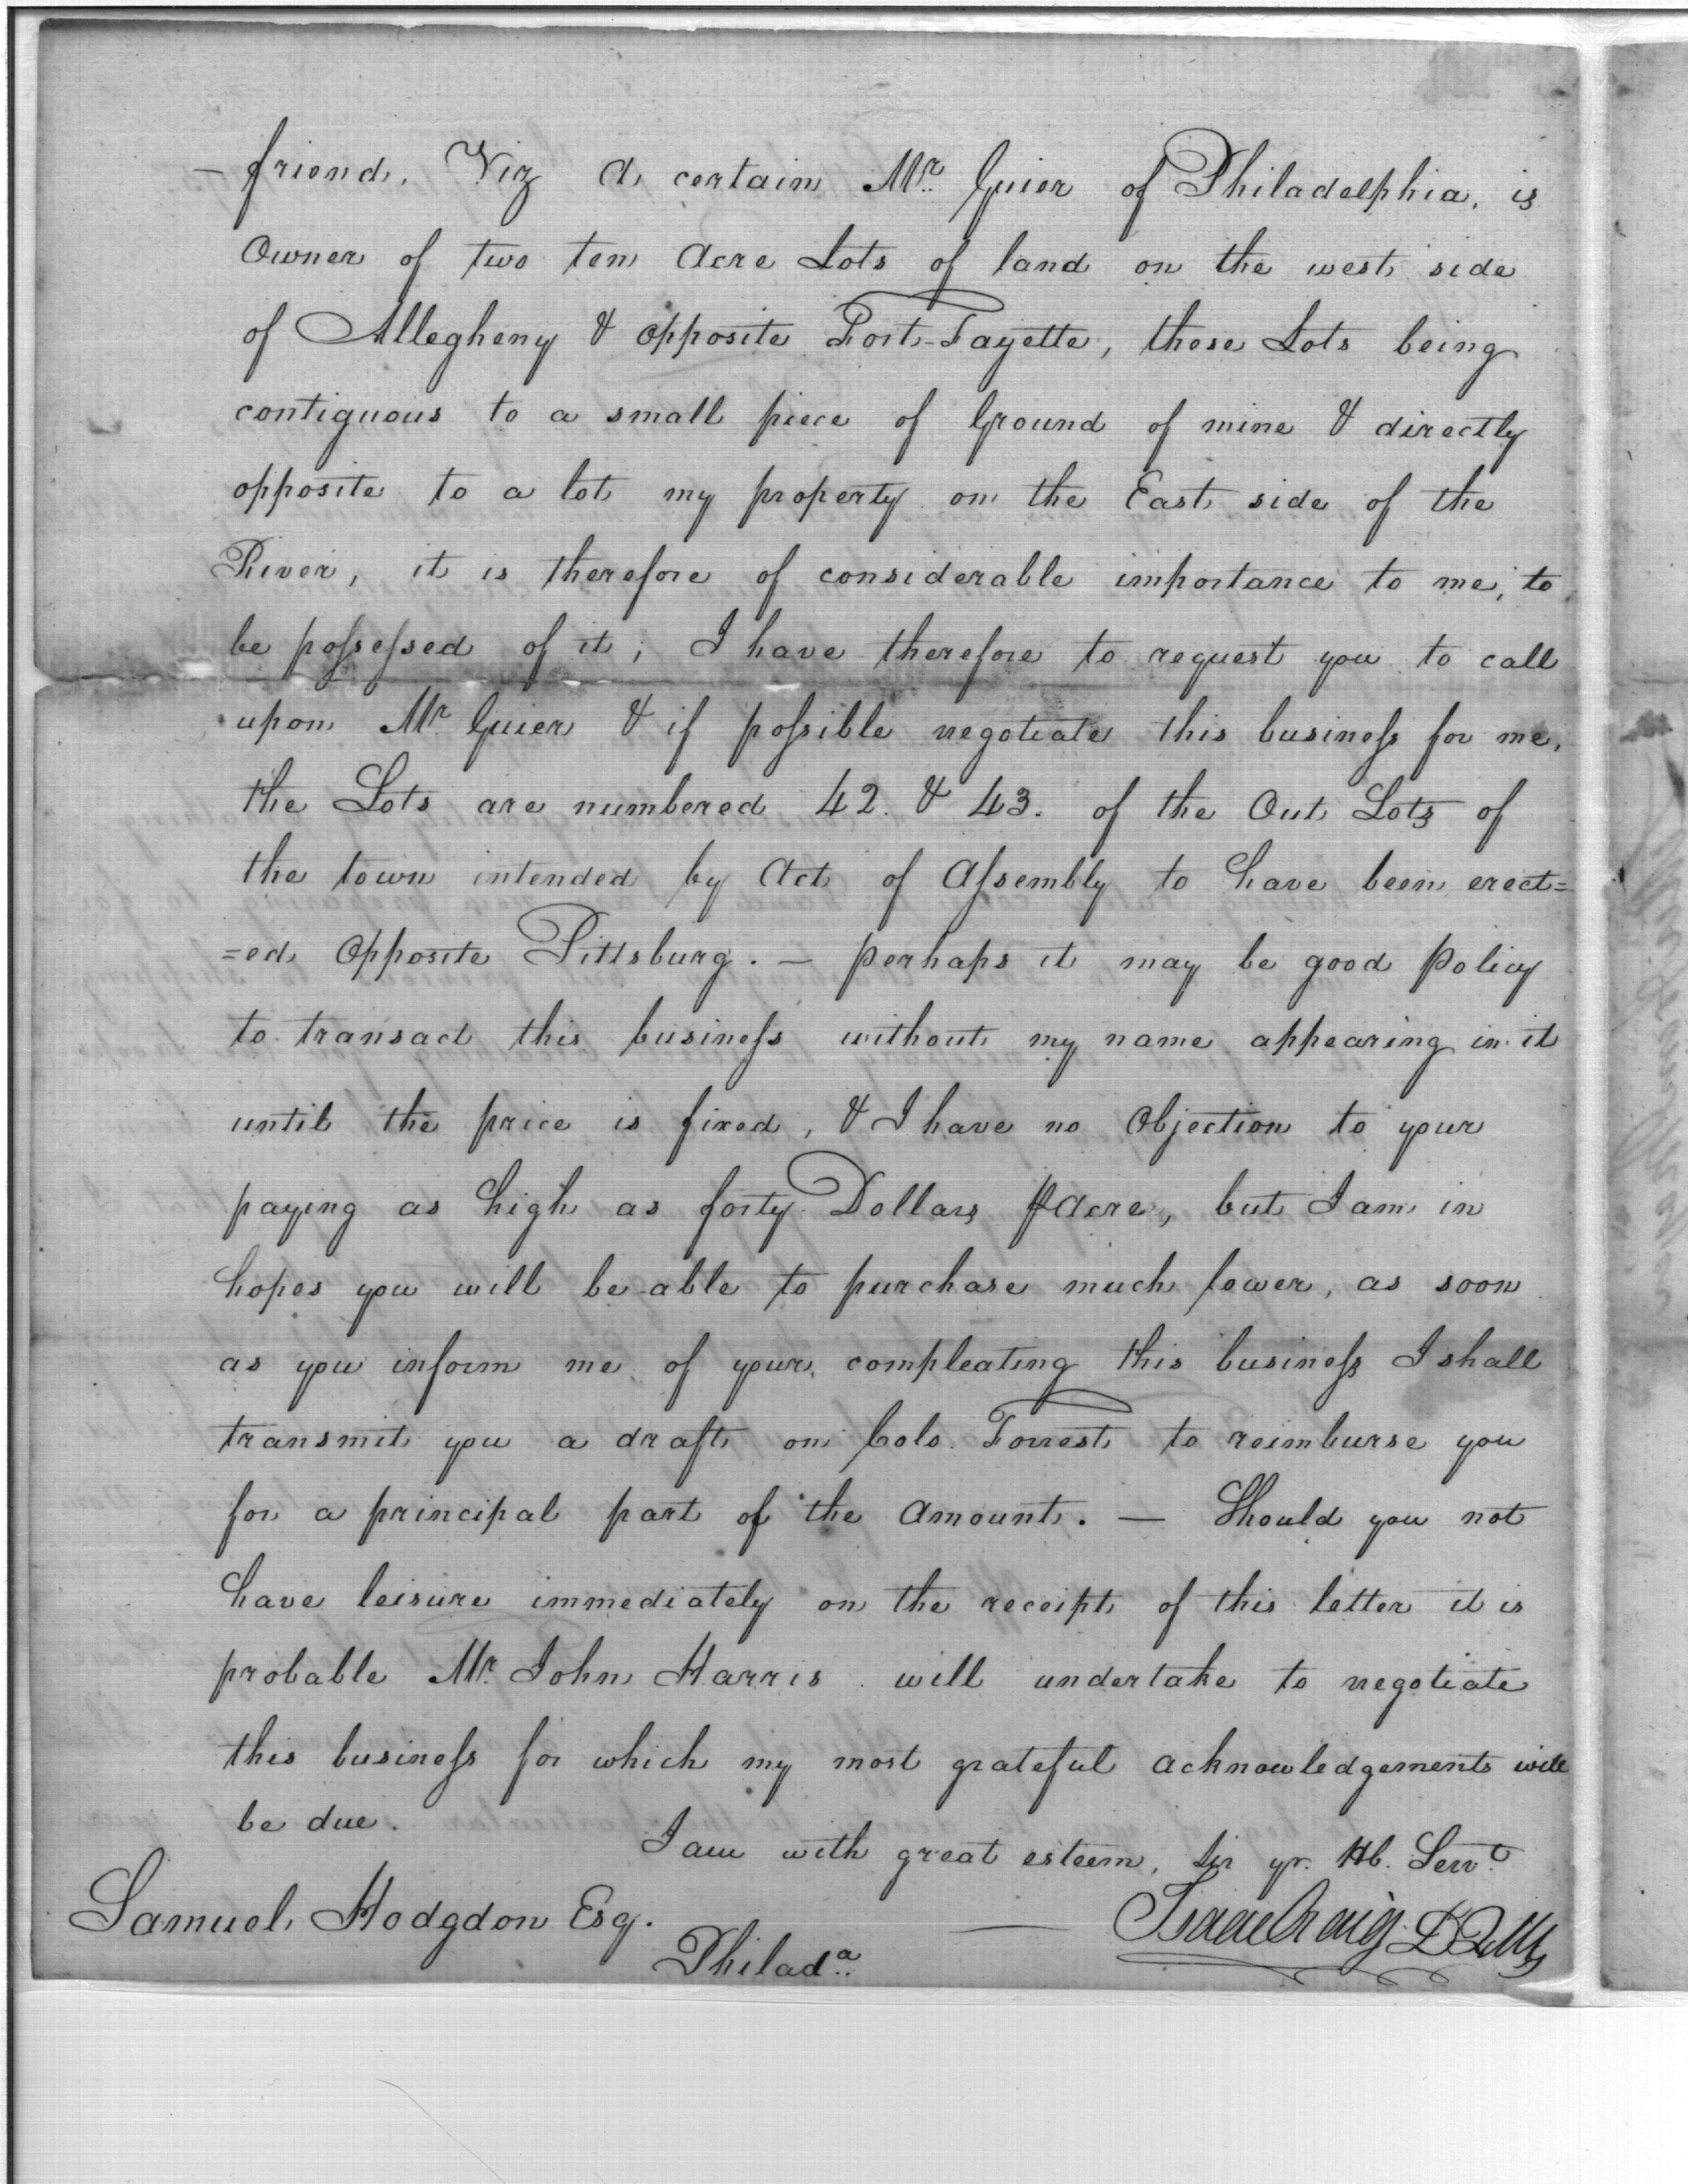 – friend. Viz A certain Mr. Guier of Philadelphia, is
Owner of two ten Acre Lots of land on the west side
of Allegheny & opposite Fort-Fayette, these Lots being
contiguous to a small piece of Ground of mine & directly
opposite to a lot my property on the East side of the
River, it is therefore of considerable importance to me, to
be possessed of it; I have therefore to request you to call
upon Mr Guier & if possible negotiate this business for me,
the Lots are numbered 42. & 43. of the Out Lots of
the town intended by Act of Assembly to have been erect=
=ed Opposite Pittsburg. – perhaps it may be good Policy
to transact this business without my name appearing in it
until the price is fixed, & I have no Objection to your
paying as high as forty Dollars ⅌ Acre, but I am in
hopes you will be able to purchase much lower, as soon
as you inform me of your compleating this business I shall
transmit you a draft on Colo. Forrest to reimburse you
for a principal part of the Amount. — Should you not
have leisure immediately on the receipt of this letter it is
probable Mr. John Harris will undertake to negotiate
this business for which my most grateful acknowledgements will
be due.
I am with great esteem, Sir yr. Hb. Servt.
Samuel Hodgdon Esq. — Isaac Craig D Q M
Philada.